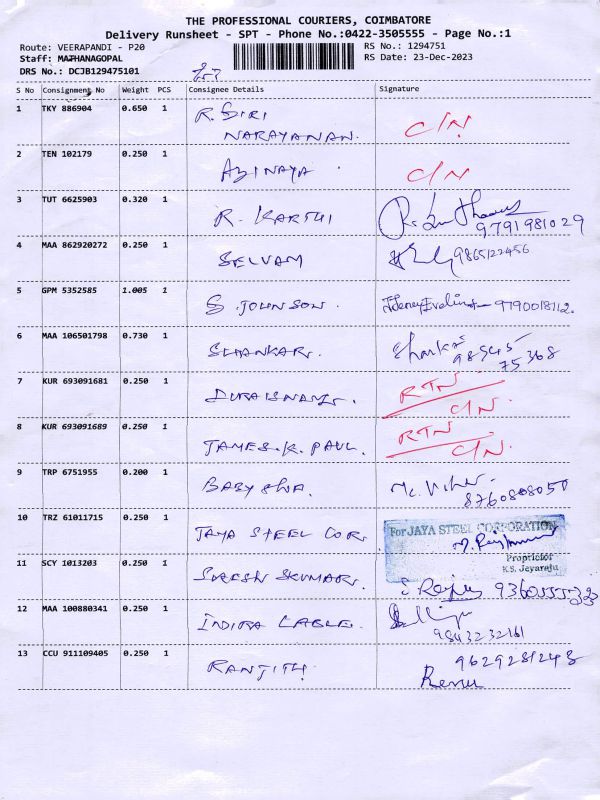 THE PROFESSIONAL COURIERS, COIMBATORE
Delivery Runsheet - SPT - Phone No.:0422-3505555 - Page No.:1
Route: VEERAPANDI - P20 RS No.: 1294751
Staff: MATHANAGOPAL RS Date: 23-Dec-2023
DRS No.: DCJB129475101
S No Consignment No Weight PCS Consignee Details Signature
1 TKY 886904 0.650 1 R. SIRI C/N
NARAYANAN.
2 TEN 102179 0.250 1 ABINAYA C/N
3 TUT 6625903 0.320 1 R. KARTHI
9791981029
4 MAA 862920272 0.250 1 SELVAM 9865122456
5 GPM 5352585 1.005 1 S. JOHNSON.
6 MAA 106501798 0.730 1 SHANKAR. 98945
75368
7 KUR 693091681 0.250 1 DURAISWAMY. RTN
C/N.
8 KUR 693091689 0.250 1 JAMES.K. PAUL. RTN
C/N.
9 TRP 6751955 0.200 1 BABY SHA.
8760808050
10 TRZ 61011715 0.250 1 JAYA STEEL COR. For JAYA STEEL CORPORATION
Proprietor
K.S. Jeyaraju
11 SCY 1013203 0.250 1 SURESH SKUMAR.
12 MAA 100880341 0.250 1 INDIRA LABLE.
9843232161
13 CCU 911109405 0.250 1 RANJITH. 9629281248
Renu